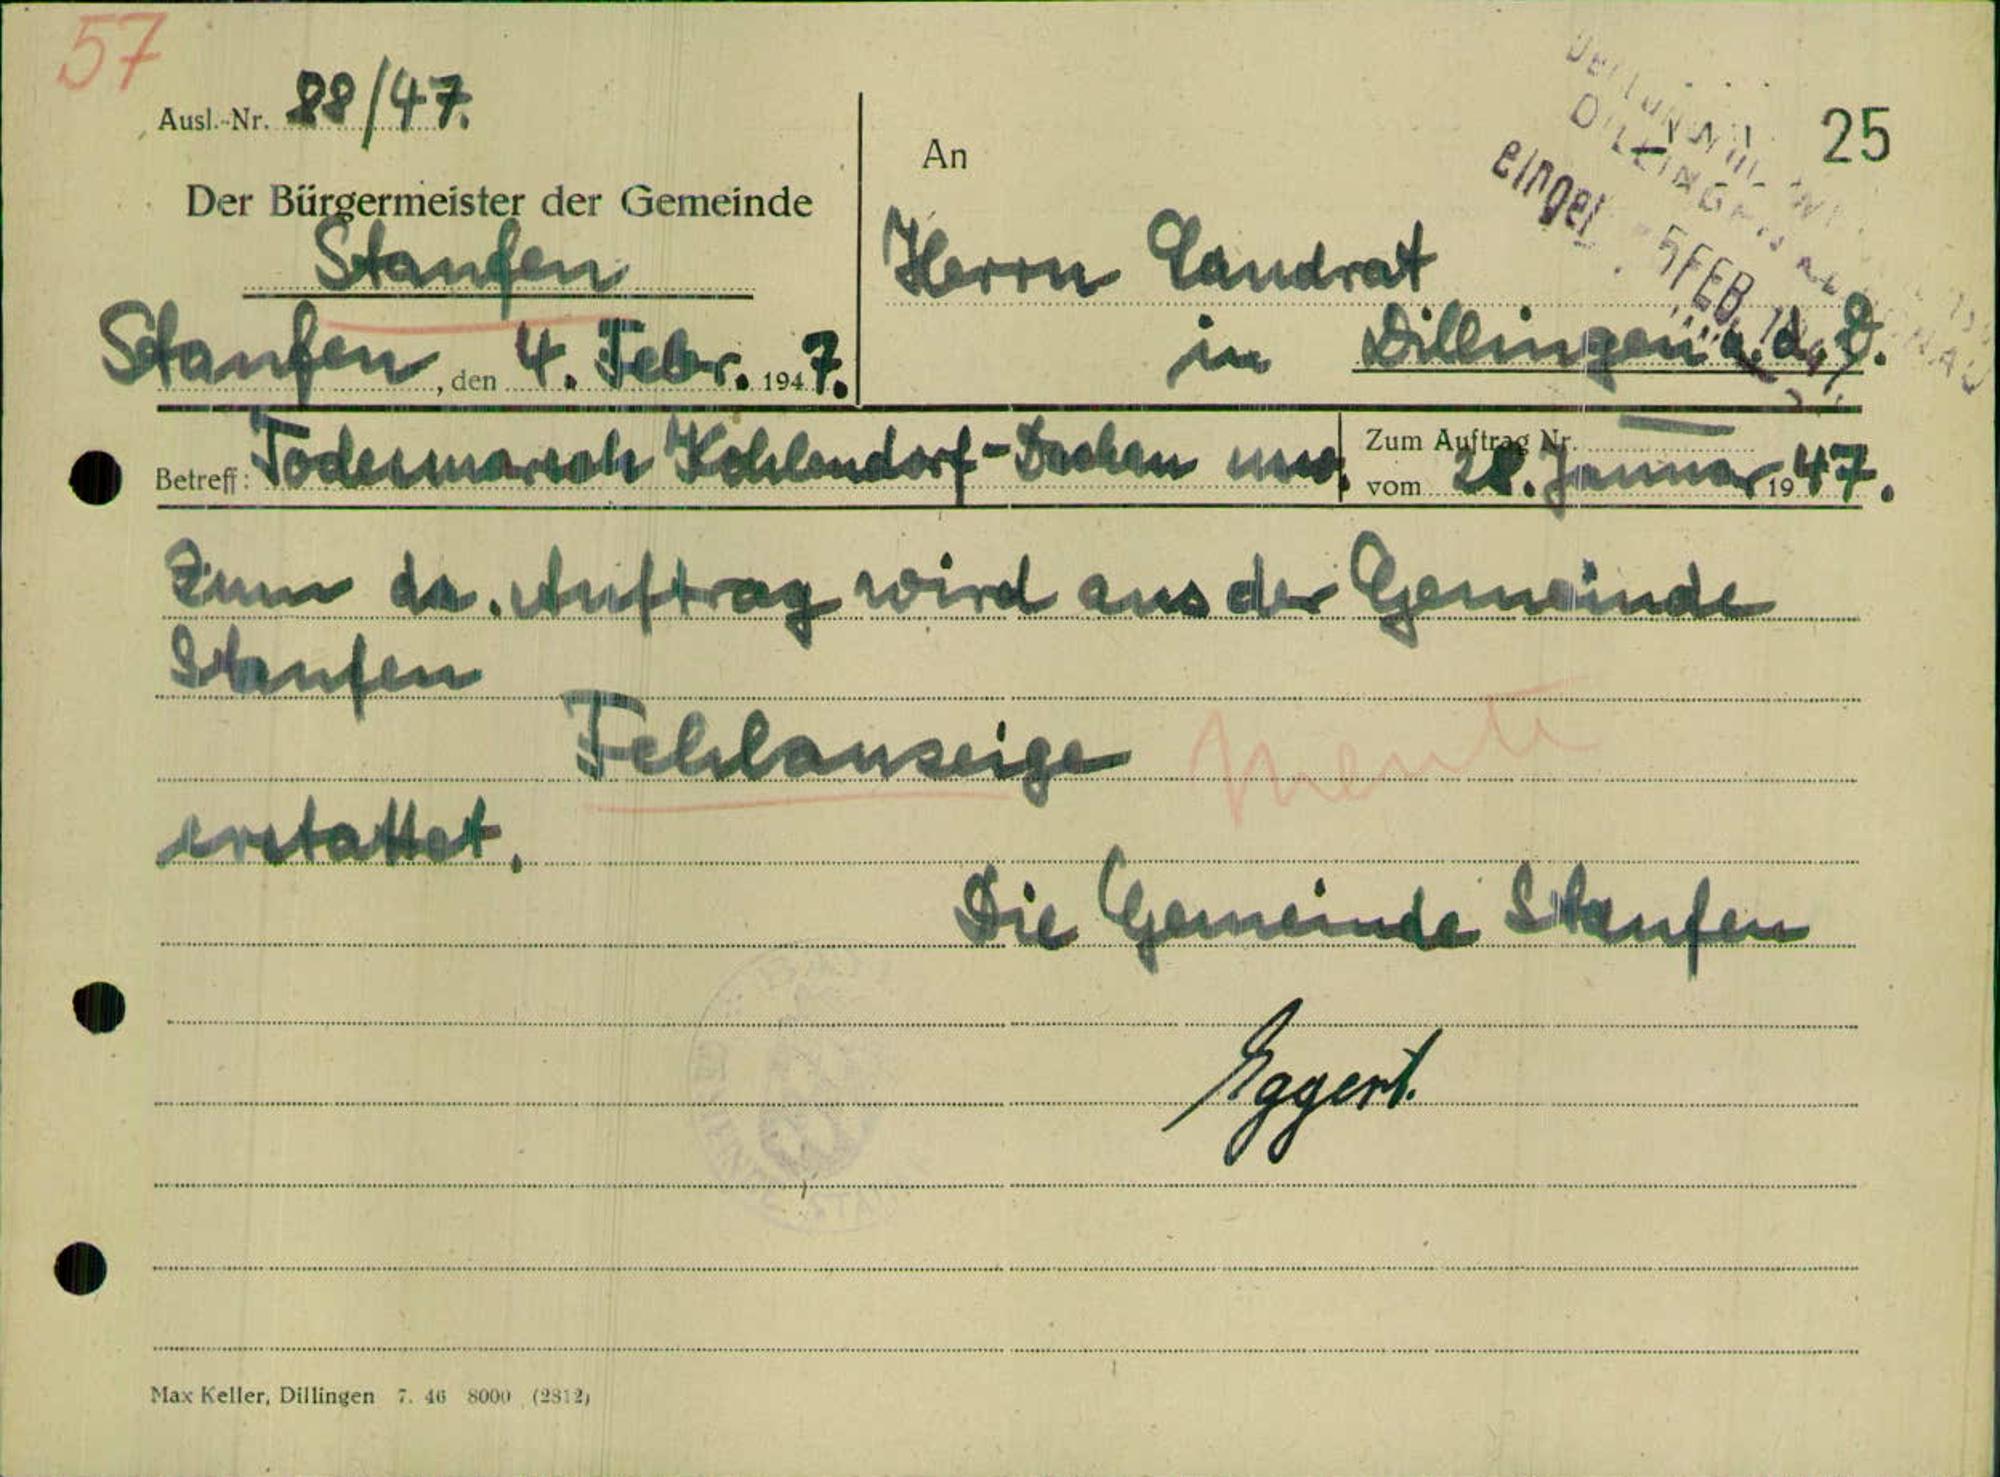 57
Ausl.-Nr. 88/47.
25
Der Bürgermeister der Gemeinde
Staufen
Staufen, den 4. Febr. 1947.
An
Herrn Landrat
in Dillingen a. d. D.
eingel. - 5 FEB. 1947
Betreff: Todesmarsch Kohlendorf-Dachau usw.
Zum Auftrag Nr. —
vom 28. Januar 1947.
Zum da. Auftrag wird aus der Gemeinde
Staufen
Fehlanzeige
erstattet.
Die Gemeinde Staufen
Eggert.
Max Keller, Dillingen 7. 46 8000 (2812)